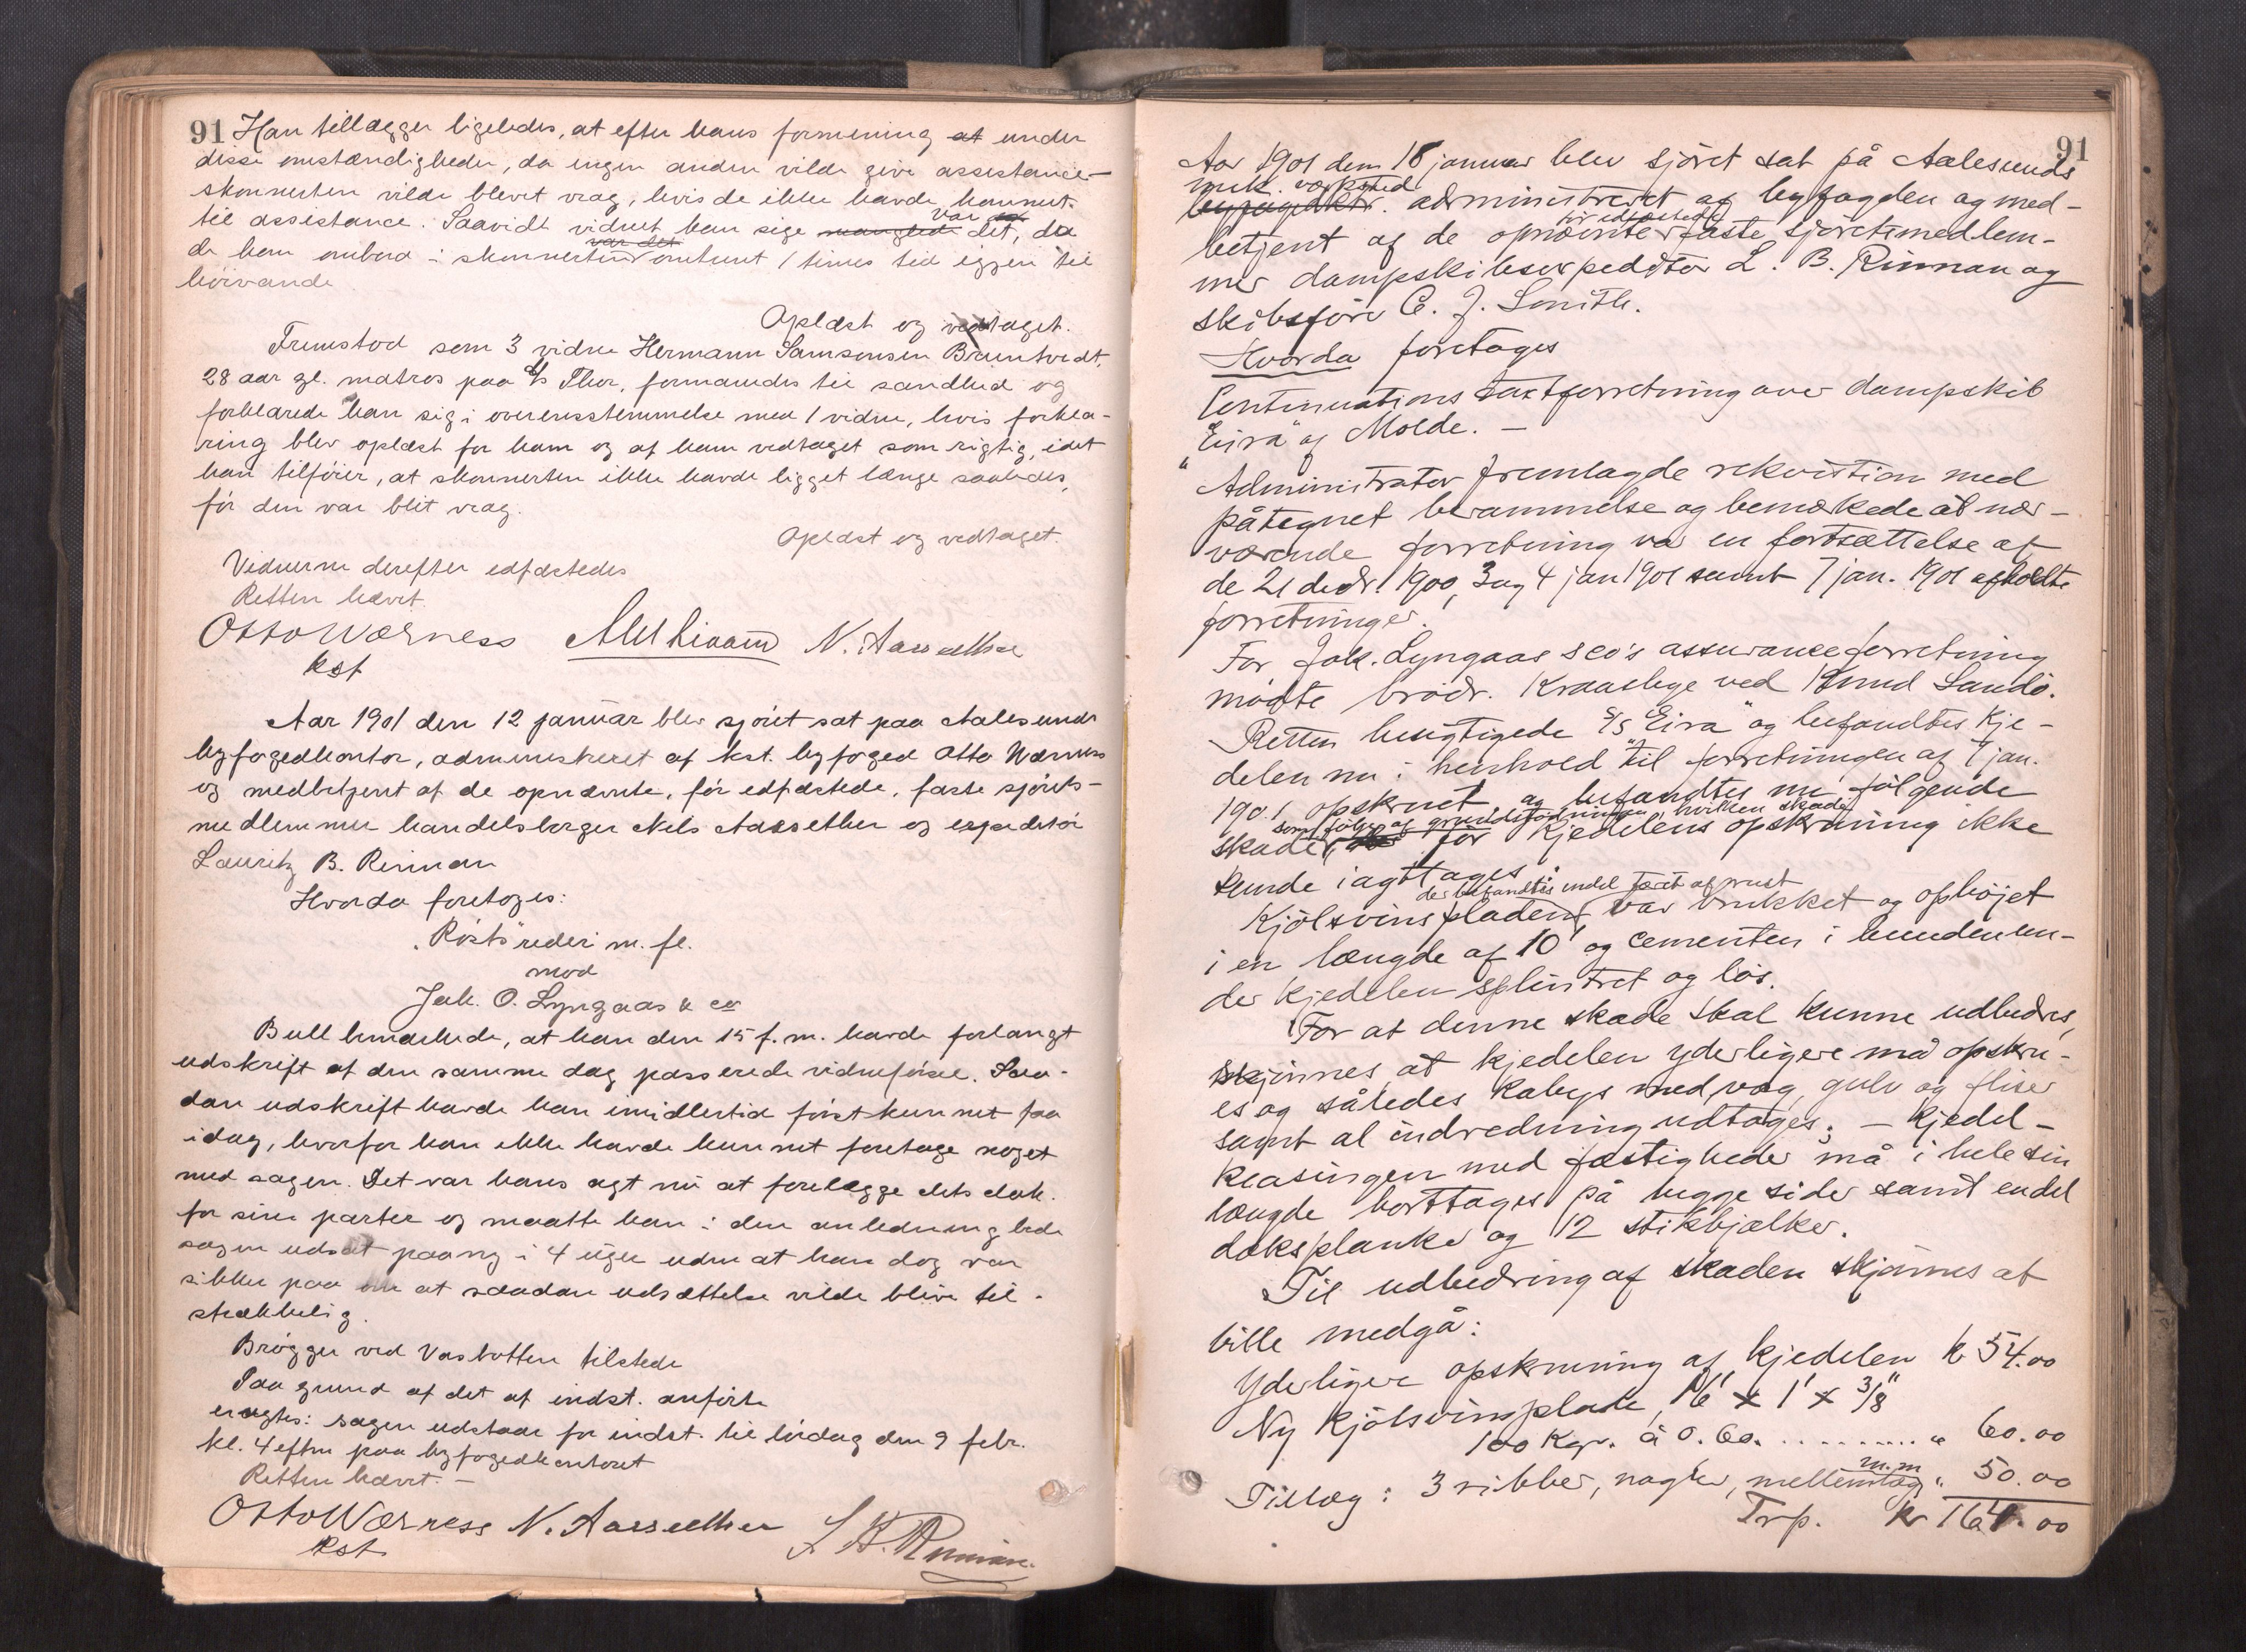 91 Han tillægger ligeledes, at efter hans formening at under
disse omstændigheder, da ingen anden vilde give assistance
skonnerten vilde blevet vrag, hvis de ikke havde kommet
til assistance. Saavidt vidnet kan sige manglede var det, da
de kom ombord i skonnerten var det omtrent 1 times tid igjen til
høivande
Oplæst og vedtaget.
Fremstod som 3 vidne Hermann Samsonsen Bruntvedt,
28 aar gl. matros paa d/s Thor, formanedes til sandhed og
forklarede han sig i overensstemmelse med 1 vidne, hvis forkla-
ring blev oplæst for ham og af ham vedtaget som rigtig, idet
han tilføier, at skonnerten ikke havde ligget længe saaledes,
før den var blit vrag.
Oplæst og vedtaget.
Vidnerne derefter edfæstedes
Retten hævet.
Otto Wærness N. Aarsether
kst
Aar 1901 den 12 januar blev sjøret sat paa Aalesunds
byfogedkontor, administreret af kst. byfoged Otto Wærness
og medbetjent af de opnævnte, før edfæstede, faste sjørets-
medlemmer handelsborger Nils Aarsether og expeditør
Lauritz B. Rinnan
Hvorda foretoges:
"Røsts" rederi m. fl.
mod
Jak. O. Lyngaas & co
Bull bemærkede, at han den 15 f. m. havde forlangt
udskrift af den samme dag passerede vidneførsel. Saa-
dan udskrift havde han imidlertid først kunnet faa
idag, hvorfor han ikke havde kunnet foretage noget
med sagen. Det var hans agt nu at forelægge dets dok.
for sine parter og maatte han i den anledning bede
sagen udsat paany i 4 uger uden at han dog var
sikker paa om at saadan udsættelse vilde blive til-
strækkelig.
Brøgger ved Vasbotten tilstede
Paa grund af det af indst. anførte
eragtes: sagen udstaar for indst. til lørdag den 9 febr.
kl. 4 eftm paa byfogedkontoret
Retten hævet. —
Otto Wærness N. Aarsether L. B. Rinnan
kst
91
Aar 1901 den 18 januar blev sjøret sat på Aalesunds
mek. værksted
byfogedktr. administreret af byfogden og med-
betjent af de opnævnte før edfæstede faste sjøretsmedlem-
mer dampskibsexpeditør L. B. Rinnan og
skibsfører C. J. Smith.
Hvorda foretages
Continuations taxtforretning over dampskib
"Eira" af Molde. —
Administrator fremlagde rekvisition med
påtegnet berammelse og bemærkede at nær-
værende forretning var en fortsættelse af
de 21 decbr 1900, 3 og 4 jan 1901 samt 7 jan. 1901 afholdte
forretninger.
For Jak. Lyngaas & co's assuranceforretning
mødte brødr. Kraaslye ved Knud Sandø.
Retten besigtigede S/S "Eira" og befandtes kje-
delen nu i henhold til forretningen af 7 jan.
1901 opskruet og befandtes nu følgende
som følge af grundstødningen, hvilken skade
skader før kjedelens opskruning ikke
kunde iagttages:
der befandtes endel tæret af rust
Kjølsvinspladen, var brukket og ophøjet
i en længde af 10' og cementen i bunden un-
der kjedelen splintret og løs.
For at denne skade skal kunne udbedres,
skjønnes at kjedelen yderligere må opskru-
es og således kabys med væg, gulv og fliser
samt al indredning udtages; — kjedel-
keasingen med fastigheder må i hele sin
længde borttages på begge sider samt endel
dæksplanker og 12 stikbjælker.
Til udbedring af skaden skjønnes at
ville medgå:
Yderligere opskruning af kjedelen kr 54.00
Ny kjølsvinsplade, 16' x 1' x 3/8"
100 Kgr. à 0.60. .......... " 60.00
Tillæg: 3 ribber, nagler, mellemlæg m.m " 50.00
Trp. kr 164.00